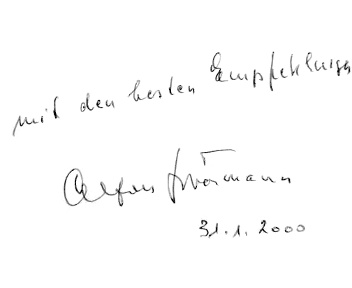 mit den besten Empfehlungen
Alfons
31.1.2000